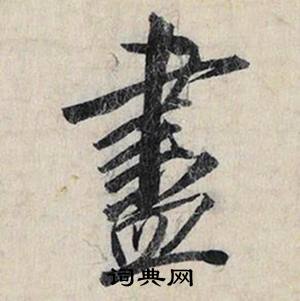 盡
词典网